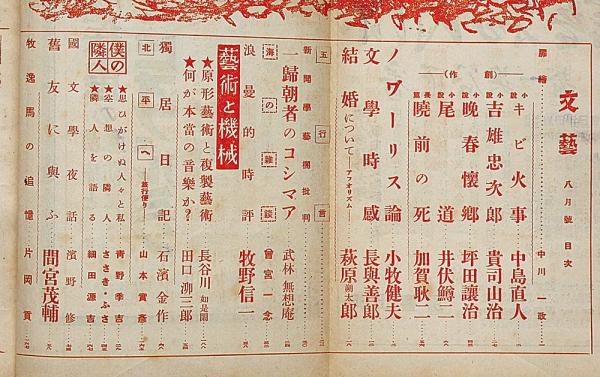 文藝 八月號 目次
扉繪 中川一政
(創作)
小說 キビ火事 中島直人
小說 吉雄忠次郎 貴司山治
小說 晩春懷鄕 坪田讓治
小說 尾道 井伏鱒二
長篇 曉前の死 加賀耿二
ノヴーリス論 小牧健夫
文學時感 長與善郎
結婚について――アフオリズム―― 萩原朔太郎
五行言
新聞學藝欄批判
一歸朝者のコシマア 武林無想庵
海の雜談 曾宮一念
浪曼的時評 牧野信一
藝術と機械
★原形藝術と複製藝術 長谷川如是閑
★何が本當の音樂か? 田口泖三郎
獨居日記 石濱金作
北平へ――旅行便り―― 山本實彥
僕の隣人
★思ひがけぬ人々と私 靑野季吉
★空想の隣人 ささき・ふさ
★隣人を語る 細田源吉
國文學夜話 濱野修
舊友に與ふ 間宮茂輔
牧逸馬の追憶 片岡貢